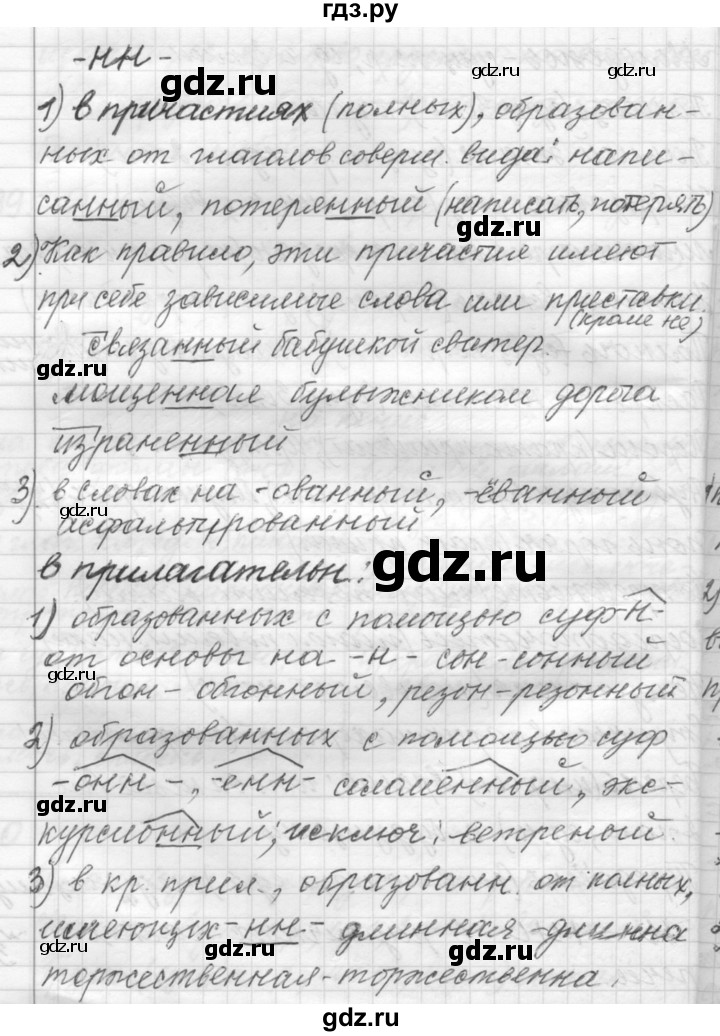 гдз.ру
-нн-
1) в причастиях (полных), образован-
ных от глаголов соверш. вида: напи-
санный, потерянный (написать, потерять)
2) Как правило, эти причастия имеют
при себе зависимые слова или приставки.
(кроме не)
связанный бабушкой свитер.
мощенная булыжником дорога
израненный
3) в словах на -ованный, -ёванный
асфальтированный
в прилагательн.:
1) образованных с помощью суф -н-
от основы на -н- сон-сонный
обгон - обгонный, резон-резонный
2) образованных с помощью суф
-онн-, -енн- соломенный, экс-
курсионный; исключ: ветреный.
3) в кр. прил., образованн. от полных,
имеющих -нн- длинная - длинна
торжественная - торжественна.
gdz.ru
gdz.ru
gdz.ru
gdz.ru
gdz.ru
gdz.ru
gdz.ru
gdz.ru
gdz.ru
gdz.ru
gdz.ru
gdz.ru
gdz.ru
gdz.ru
гдз.ру